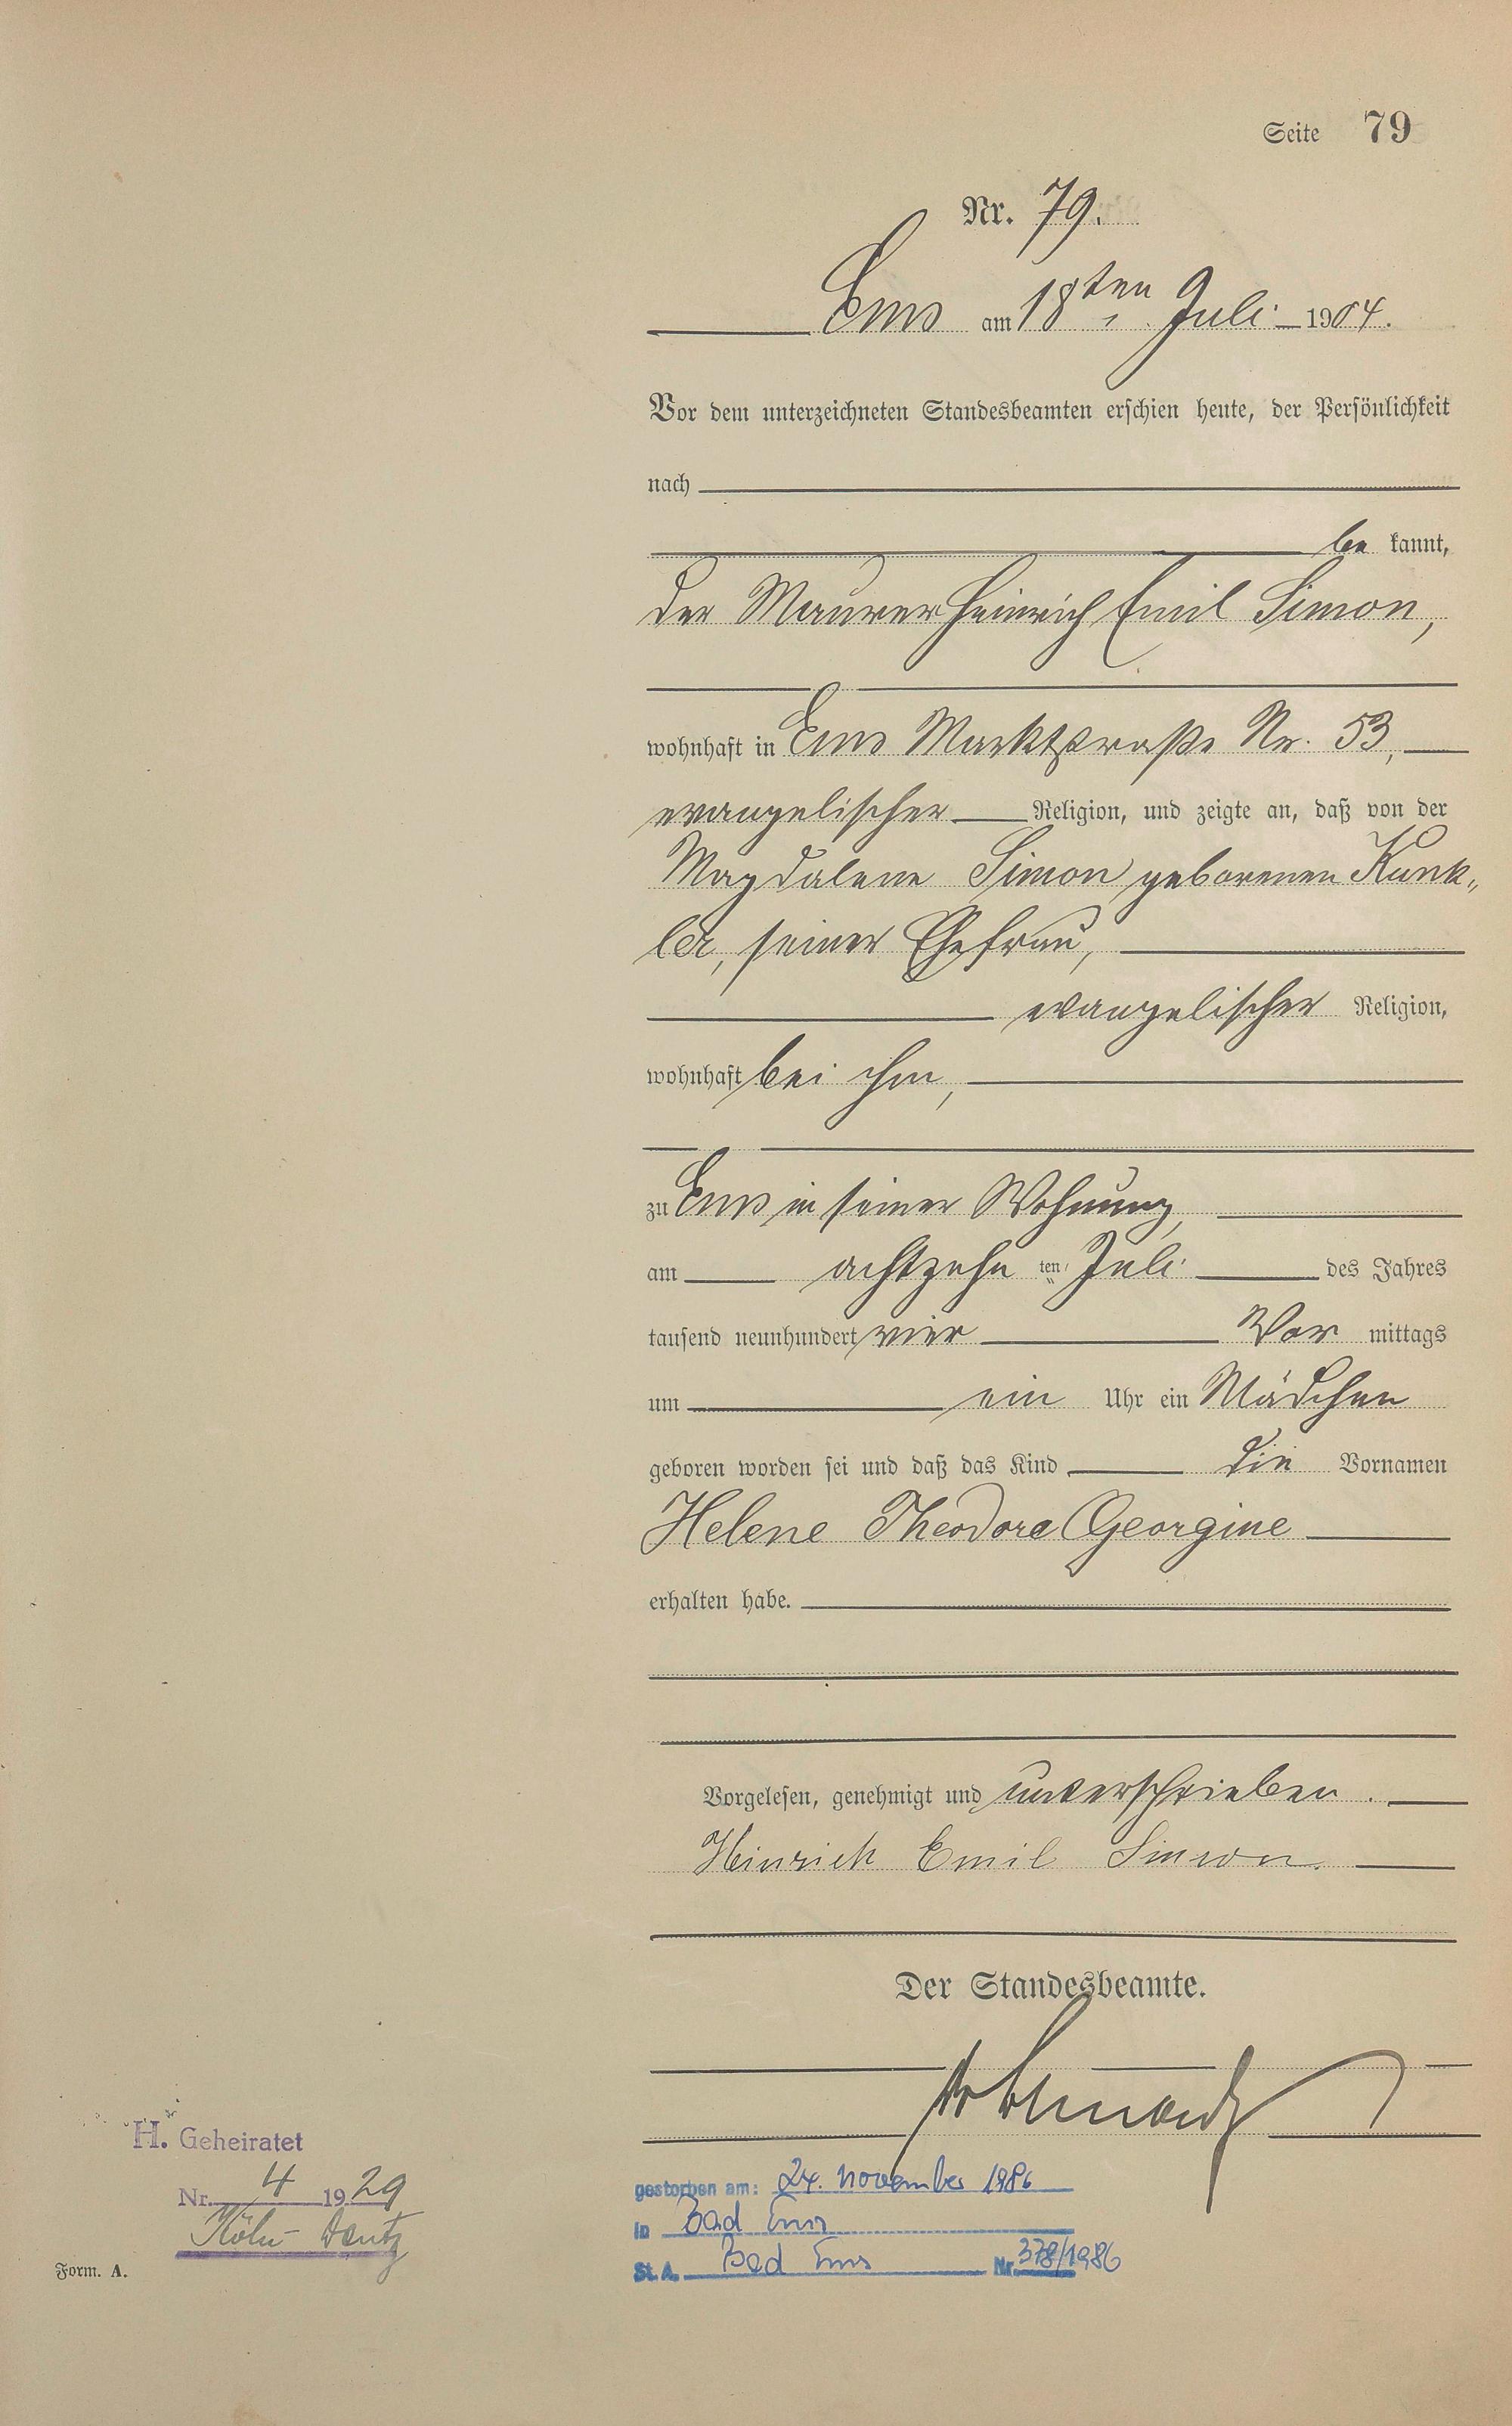 Seite 79
Nr. 79.
Ems am 18ten Juli 1904.
Vor dem unterzeichneten Standesbeamten erschien heute, der Persönlichkeit
nach
be kannt,
der Maurer Heinrich Emil Simon,
wohnhaft in Ems Marktstraße Nr. 53,
evangelischer Religion, und zeigte an, daß von der
Magdalene Simon geborenen Kunk„
ler, seiner Ehefrau,
evangelischer Religion,
wohnhaft bei ihm,
zu Ems in seiner Wohnung,
am achtzehn ten Juli des Jahres
tausend neunhundert vier Vor mittags
um ein Uhr ein Mädchen
geboren worden sei und daß das Kind die Vornamen
Helene Theodore Georgine
erhalten habe.
Vorgelesen, genehmigt und unterschrieben.
Heinrich Emil Simon.
Der Standesbeamte.
H. Geheiratet
Nr. 4 1929
Köln-Deutz
gestorben am: 24. November 1986
in Bad Ems
St. A. Bad Ems Nr. 378/1986
Form. A.